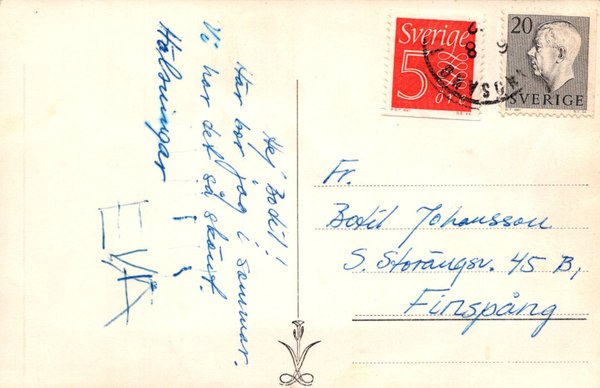 Hej Bodil!
Här bor jag i sommar.
Vi har det så skönt.
Hälsningar
EVA
Sverige
5
öre
20
SVERIGE
Fr.
Bodil Johansson
S. Storängsv. 45 B,
Finspång